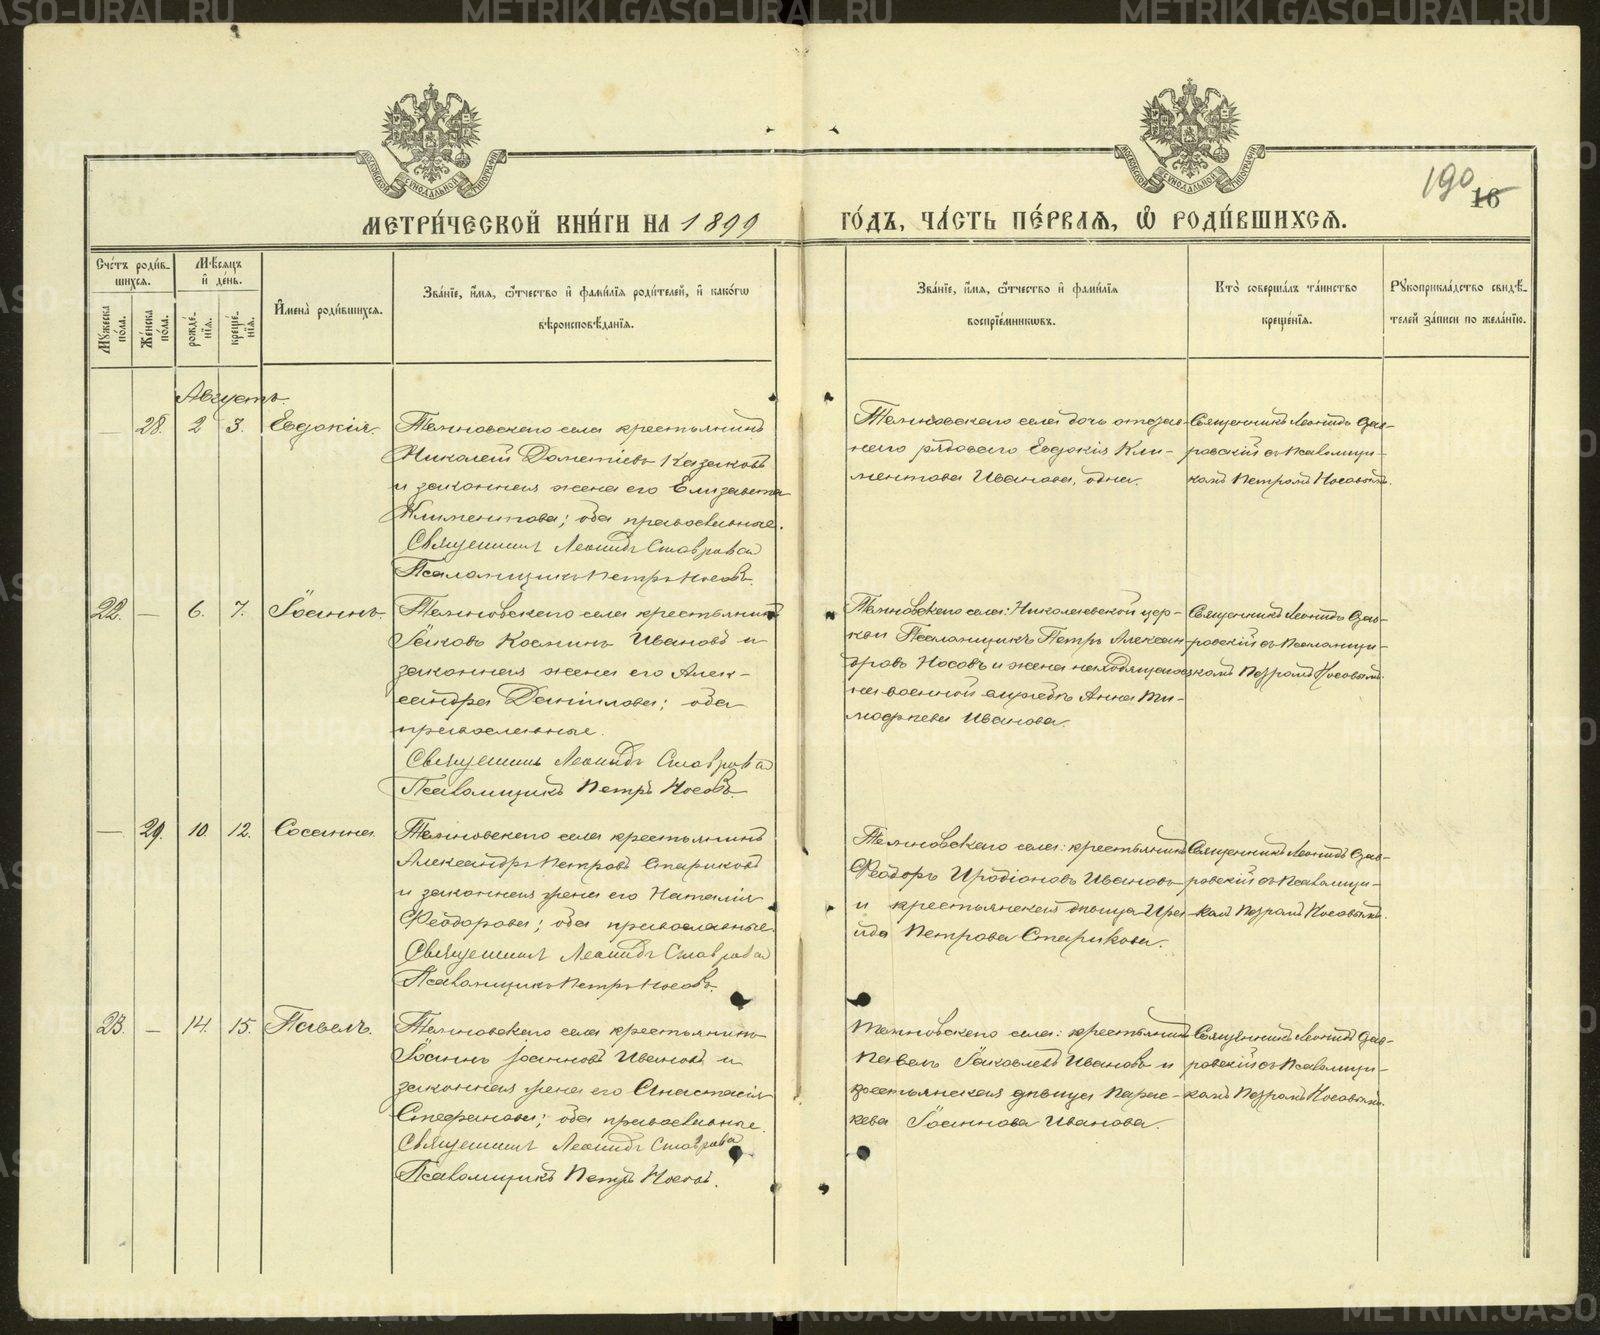 METRIKI.GASO-URAL.RU
МОСКОВСКОЙ СУНОДАЛЬНОЙ ТИПОГРАФІИ
МОСКОВСКОЙ СУНОДАЛЬНОЙ ТИПОГРАФІИ
190
16
МЕТРИ́ЧЕСКОЙ КНИ́ГИ НА 1899
ГО́ДЪ, ЧА́СТЬ ПЕ́РВАЯ, Ѿ РОДИ́ВШИХСЯ.
Сче́тъ роди́в-
шихся.
Мꙋжеска по́ла.
Же́нска по́ла.
Мѣ́сяцъ
и҆ де́нь.
рожде́-
нїя.
креще́-
нїя.
И҆мена̀ роди́вшихся.
Зва́нїе, и҆́мя, ѻ҆́тчество и҆ фами́лїя роди́телей, и҆ како́гѡ
вѣроисповѣ́данїя.
Зва́нїе, и҆́мя, ѻ҆́тчество и҆ фами́лїя
воспрїе́мникѡвъ.
Кто̀ соверша́лъ та́инство
креще́нїя.
Рꙋкоприкла́дство свидѣ́-
телей за́писи по жела́нїю.
Августъ.
— 28. 2 3. Евдокія.
Темновскаго села крестьянинъ
Николай Дометіевъ Казаковъ
и законная жена его Елизавета
Климентова; оба православные.
Священникъ Леонидъ Ставровскій
Псаломщикъ Петръ Носовъ.
Темновскаго села дочь отстав-
наго рядоваго Евдокія Кли-
ментова Иванова, одна.
Священникъ Леонидъ Став-
ровскій съ Псаломщи-
комъ Петромъ Носовымъ.
22. — 6. 7. Іоаннъ.
Темновскаго села крестьянинъ
Іаковъ Косминъ Ивановъ и
законная жена его Алек-
сандра Даніилова; оба
православные.
Священникъ Леонидъ Ставровскій
Псаломщикъ Петръ Носовъ.
Темновскаго села: Николаевской цер-
кви Псаломщикъ Петръ Алексан-
дровъ Носовъ и жена находящагося
на военной службѣ Анна Ти-
моѳеева Иванова.
Священникъ Леонидъ Став-
ровскій съ Псаломщи-
комъ Петромъ Носовымъ.
— 29. 10. 12. Сосанна.
Темновскаго села крестьянинъ
Александръ Петровъ Стариковъ
и законная жена его Наталія
Ѳеодорова; оба православные.
Священникъ Леонидъ Ставровскій
Псаломщикъ Петръ Носовъ.
Темновскаго села: крестьянинъ
Ѳеодоръ Иродіоновъ Ивановъ
и крестьянская дѣвица Ира-
ида Петрова Старикова.
Священникъ Леонидъ Став-
ровскій съ Псаломщи-
комъ Петромъ Носовымъ.
23. — 14. 15. Павелъ.
Темновскаго села крестьянинъ
Іоаннъ Іоанновъ Ивановъ и
законная жена его Анастасія
Стефанова; оба православные.
Священникъ Леонидъ Ставровскій
Псаломщикъ Петръ Носовъ.
Темновскаго села: крестьянинъ
Павелъ Іаковлевъ Ивановъ и
крестьянская дѣвица Парас-
кева Іоаннова Иванова.
Священникъ Леонидъ Став-
ровскій съ Псаломщи-
комъ Петромъ Носовымъ.